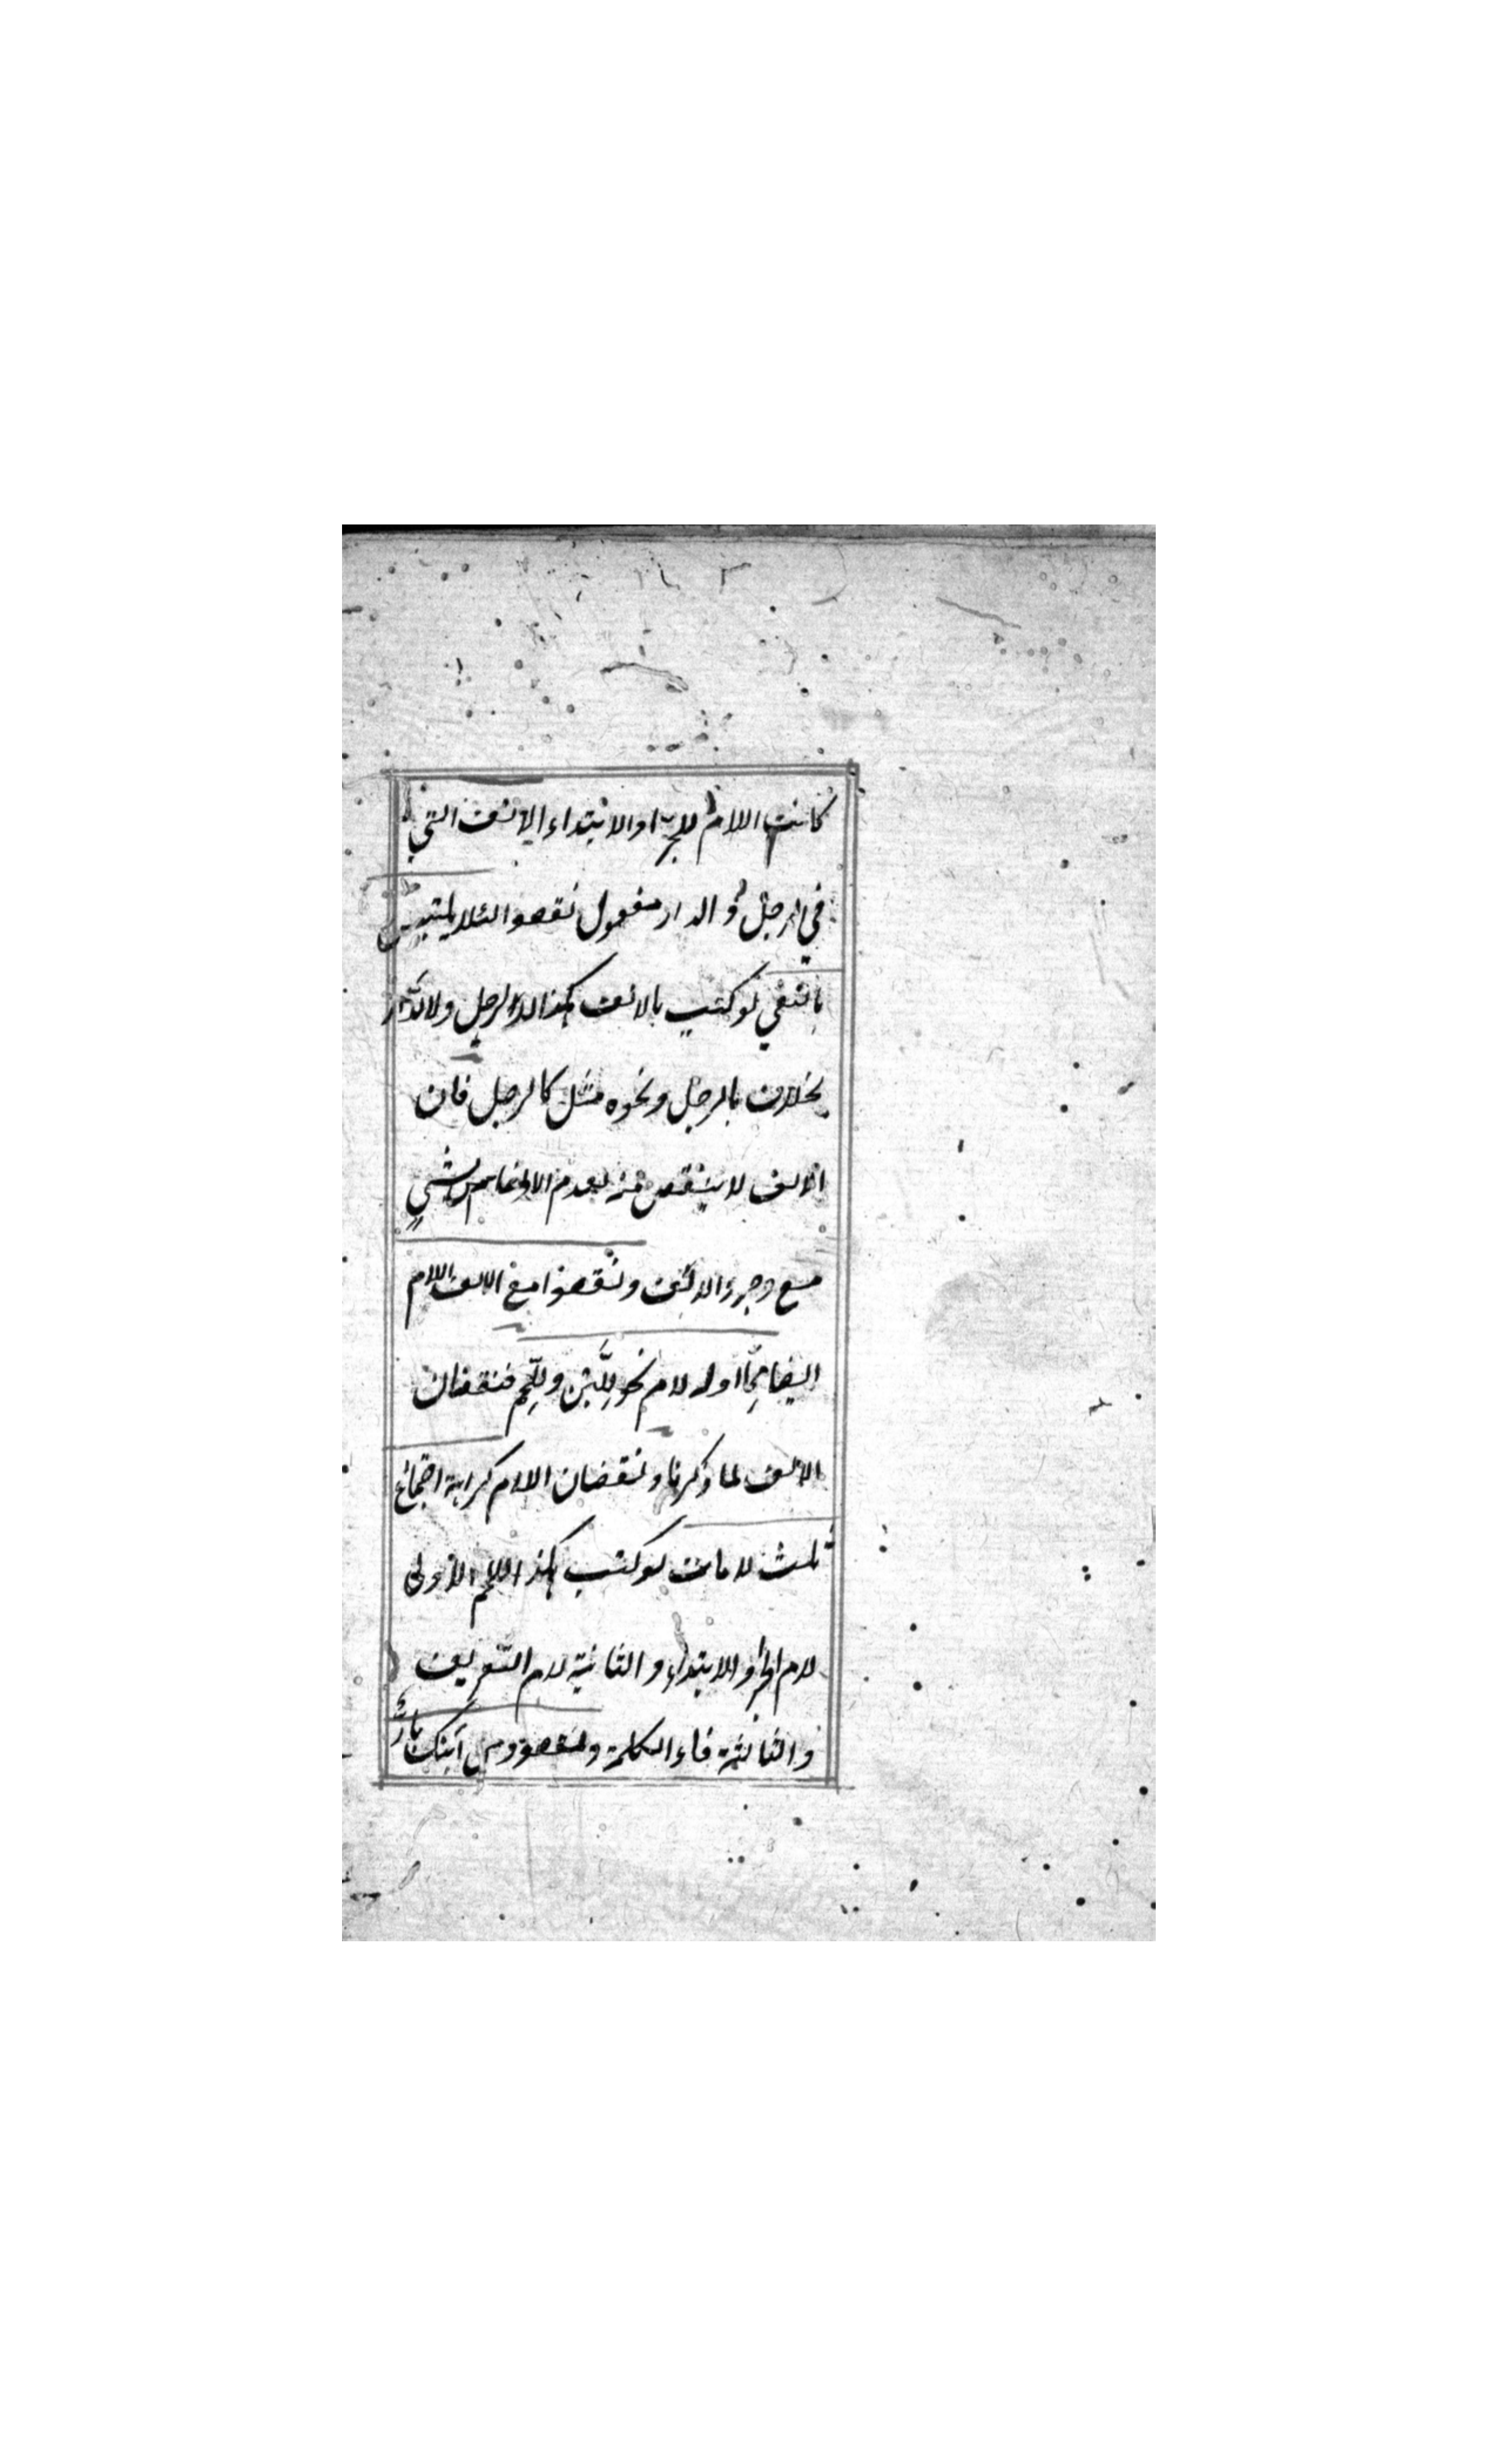 كانت اللام للجر او الابتداء الالف التي
في الرجل والدار مفعول نقصوا لئلا يلتبس
بالنفي لو كتبت بالالف هكذا لالرجل ولالدار
بخلاف بالرجل ونحوه مثل كالرجل فان
الالف لا ينقص منه لعدم الالتباس بشيء
مع وجود الالف ونقصوا مع الالف اللام
ايضا مما اوله لام نحو للبن وللحم فنقصان
الالف لما ذكرنا ونقصان اللام كراهة اجتماع
ثلث لامات لو كتب هكذا اللحم الاولى
لام الجر او الابتداء والثانية لام التعريف
والثالثة فاء الكلمة ونقصوا من ابنك بار